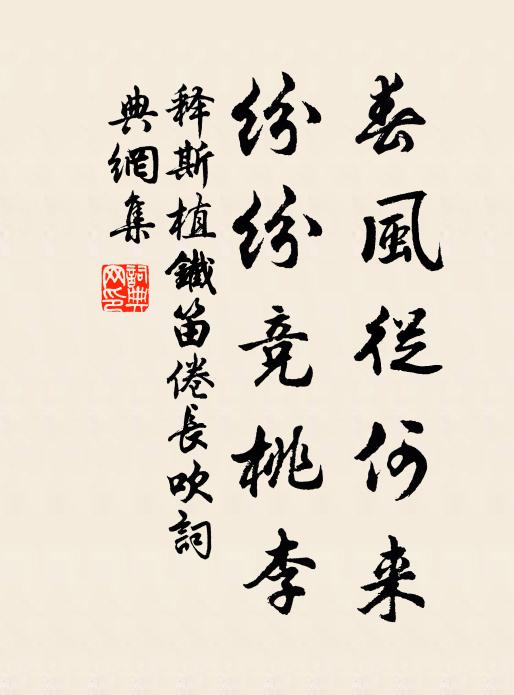 春風從何来
紛紛竞桃李
释斯植鐵笛倦長吹詞
典網集
詞典网印